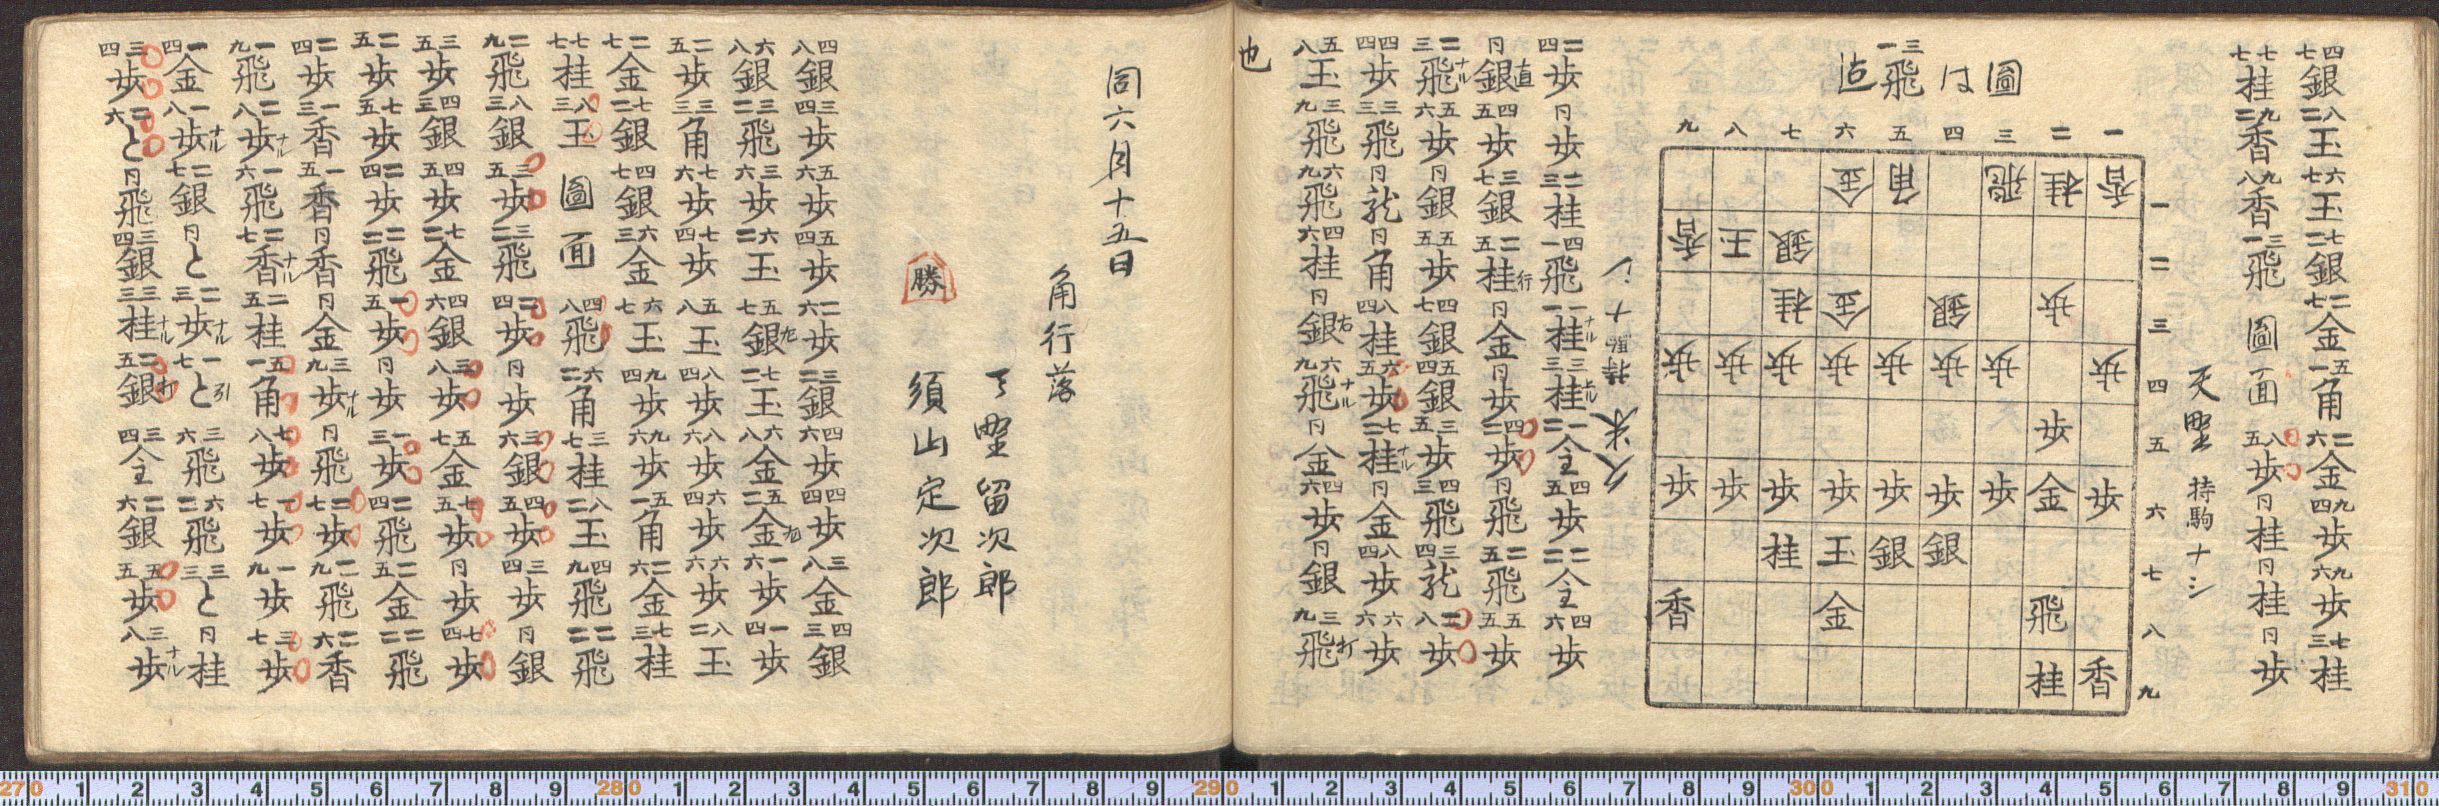 四七銀 八二玉 六七玉 七二銀 二七金 五一角 二六金 九四歩 九六歩 七三桂
七七桂 九二香 九八香 三一飛 圖面 八五歩 同桂 同桂 同歩
天野 持駒ナシ
圖は三一飛迠
九 八 七 六 五 四 三 二 一
金 角 飛 桂 香 一
香 王 銀 二
桂 金 銀 歩 三
歩 歩 歩 歩 歩 歩 歩 歩 四
歩 五
歩 歩 歩 歩 歩 歩 歩 金 歩 六
桂 玉 銀 銀 七
香 金 飛 八
桂 香 九
久米 持駒ナシ
二四歩 同歩 二三桂 四一飛 一一桂ナル 三三桂ナル 一二全 四五歩 二二全 四六歩
同銀直 四五歩 三七銀 二五桂行 同金 同歩 四二歩 同飛 二五飛 五五歩
二三飛ナル 五六歩 同銀 五五歩 四七銀 五四銀 三五歩 四三飛 三四龍 二八歩
四四歩 三三飛 同龍 同角 八四桂 六五歩 七二桂ナル 同金 八四歩 六六歩
五八玉 三九飛 六九飛 四六桂 同銀右 六九飛ナル 同金 四六歩 同銀 三九飛打
也
同六月十五日
角行落
天野留次郎
勝 須山定次郎
四八銀 三四歩 五六歩 五四歩 二六歩 三二銀 四六歩 四四歩 三八金 四三銀
六八銀 三二飛 三六歩 六二玉 五七銀左 七二玉 六八金 五二金左 一六歩 一四歩
二五歩 三三角 七六歩 七四歩 五八玉 八四歩 八六歩 六四歩 六六歩 八二玉
二七金 七二銀 四七銀 六三金 六七玉 九四歩 九六歩 五一角 二六金 七三桂
七七桂 八三玉 圖面 四八飛 六二角 三七桂 八二玉 四九飛 二二飛
二九飛 八三銀 三五歩 三二飛 二四歩 同歩 三六銀 四五歩 三四歩 同銀
三五歩 四三銀 四五歩 七二金 四六銀 三八歩 五七金 七五歩 同歩 七四歩
二五歩 七五歩 二四歩 二二飛 一五歩 同歩 一三歩 二四飛 二五金 二二飛
二四歩 一三香 一五香 同香 同金 三九歩ナル 同飛 二七歩 二九飛 二六香
一九飛 二八歩ナル 一六飛 二七香ナル 二五桂 五一角 七八歩 一七歩 一九歩 三七歩
一四金 一八歩ナル 二七銀 同と 二三歩ナル 一七と引 三六飛 六二飛 三三と 同桂
三四歩 二六と 同飛 三四銀 三三桂ナル 二五銀打 三四全 二六銀 五五歩 三八歩ナル
270 1 2 3 4 5 6 7 8 9 280 1 2 3 4 5 6 7 8 9 290 1 2 3 4 5 6 7 8 9 300 1 2 3 4 5 6 7 8 9 310